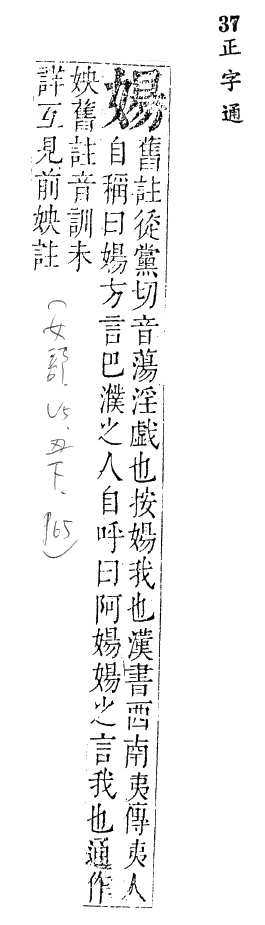 37 正字通
婸
舊註從黨切音蕩淫戲也按婸我也漢書西南夷傳夷人
自稱曰婸方言巴濮之人自呼曰阿婸婸之言我也通作
姎舊註音訓未
詳互見前姎註
(女部,